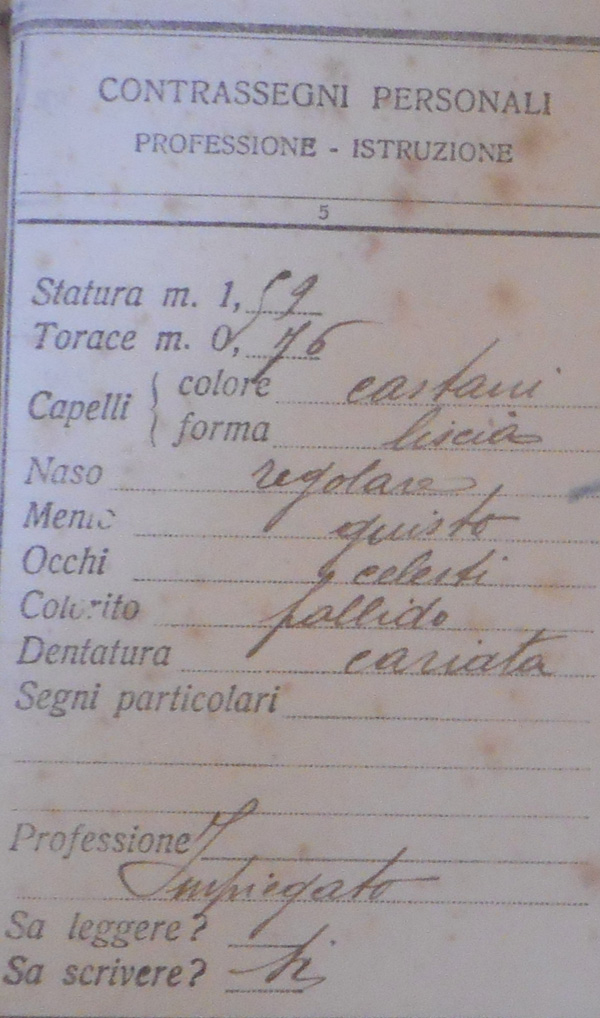 CONTRASSEGNI PERSONALI
PROFESSIONE - ISTRUZIONE
5
Statura m. 1, 59
Torace m. 0, 76
Capelli { colore castani
forma liscia
Naso regolare
Mento giusto
Occhi celesti
Colorito pallido
Dentatura cariata
Segni particolari
Professione
Impiegato
Sa leggere?
Sa scrivere? Si